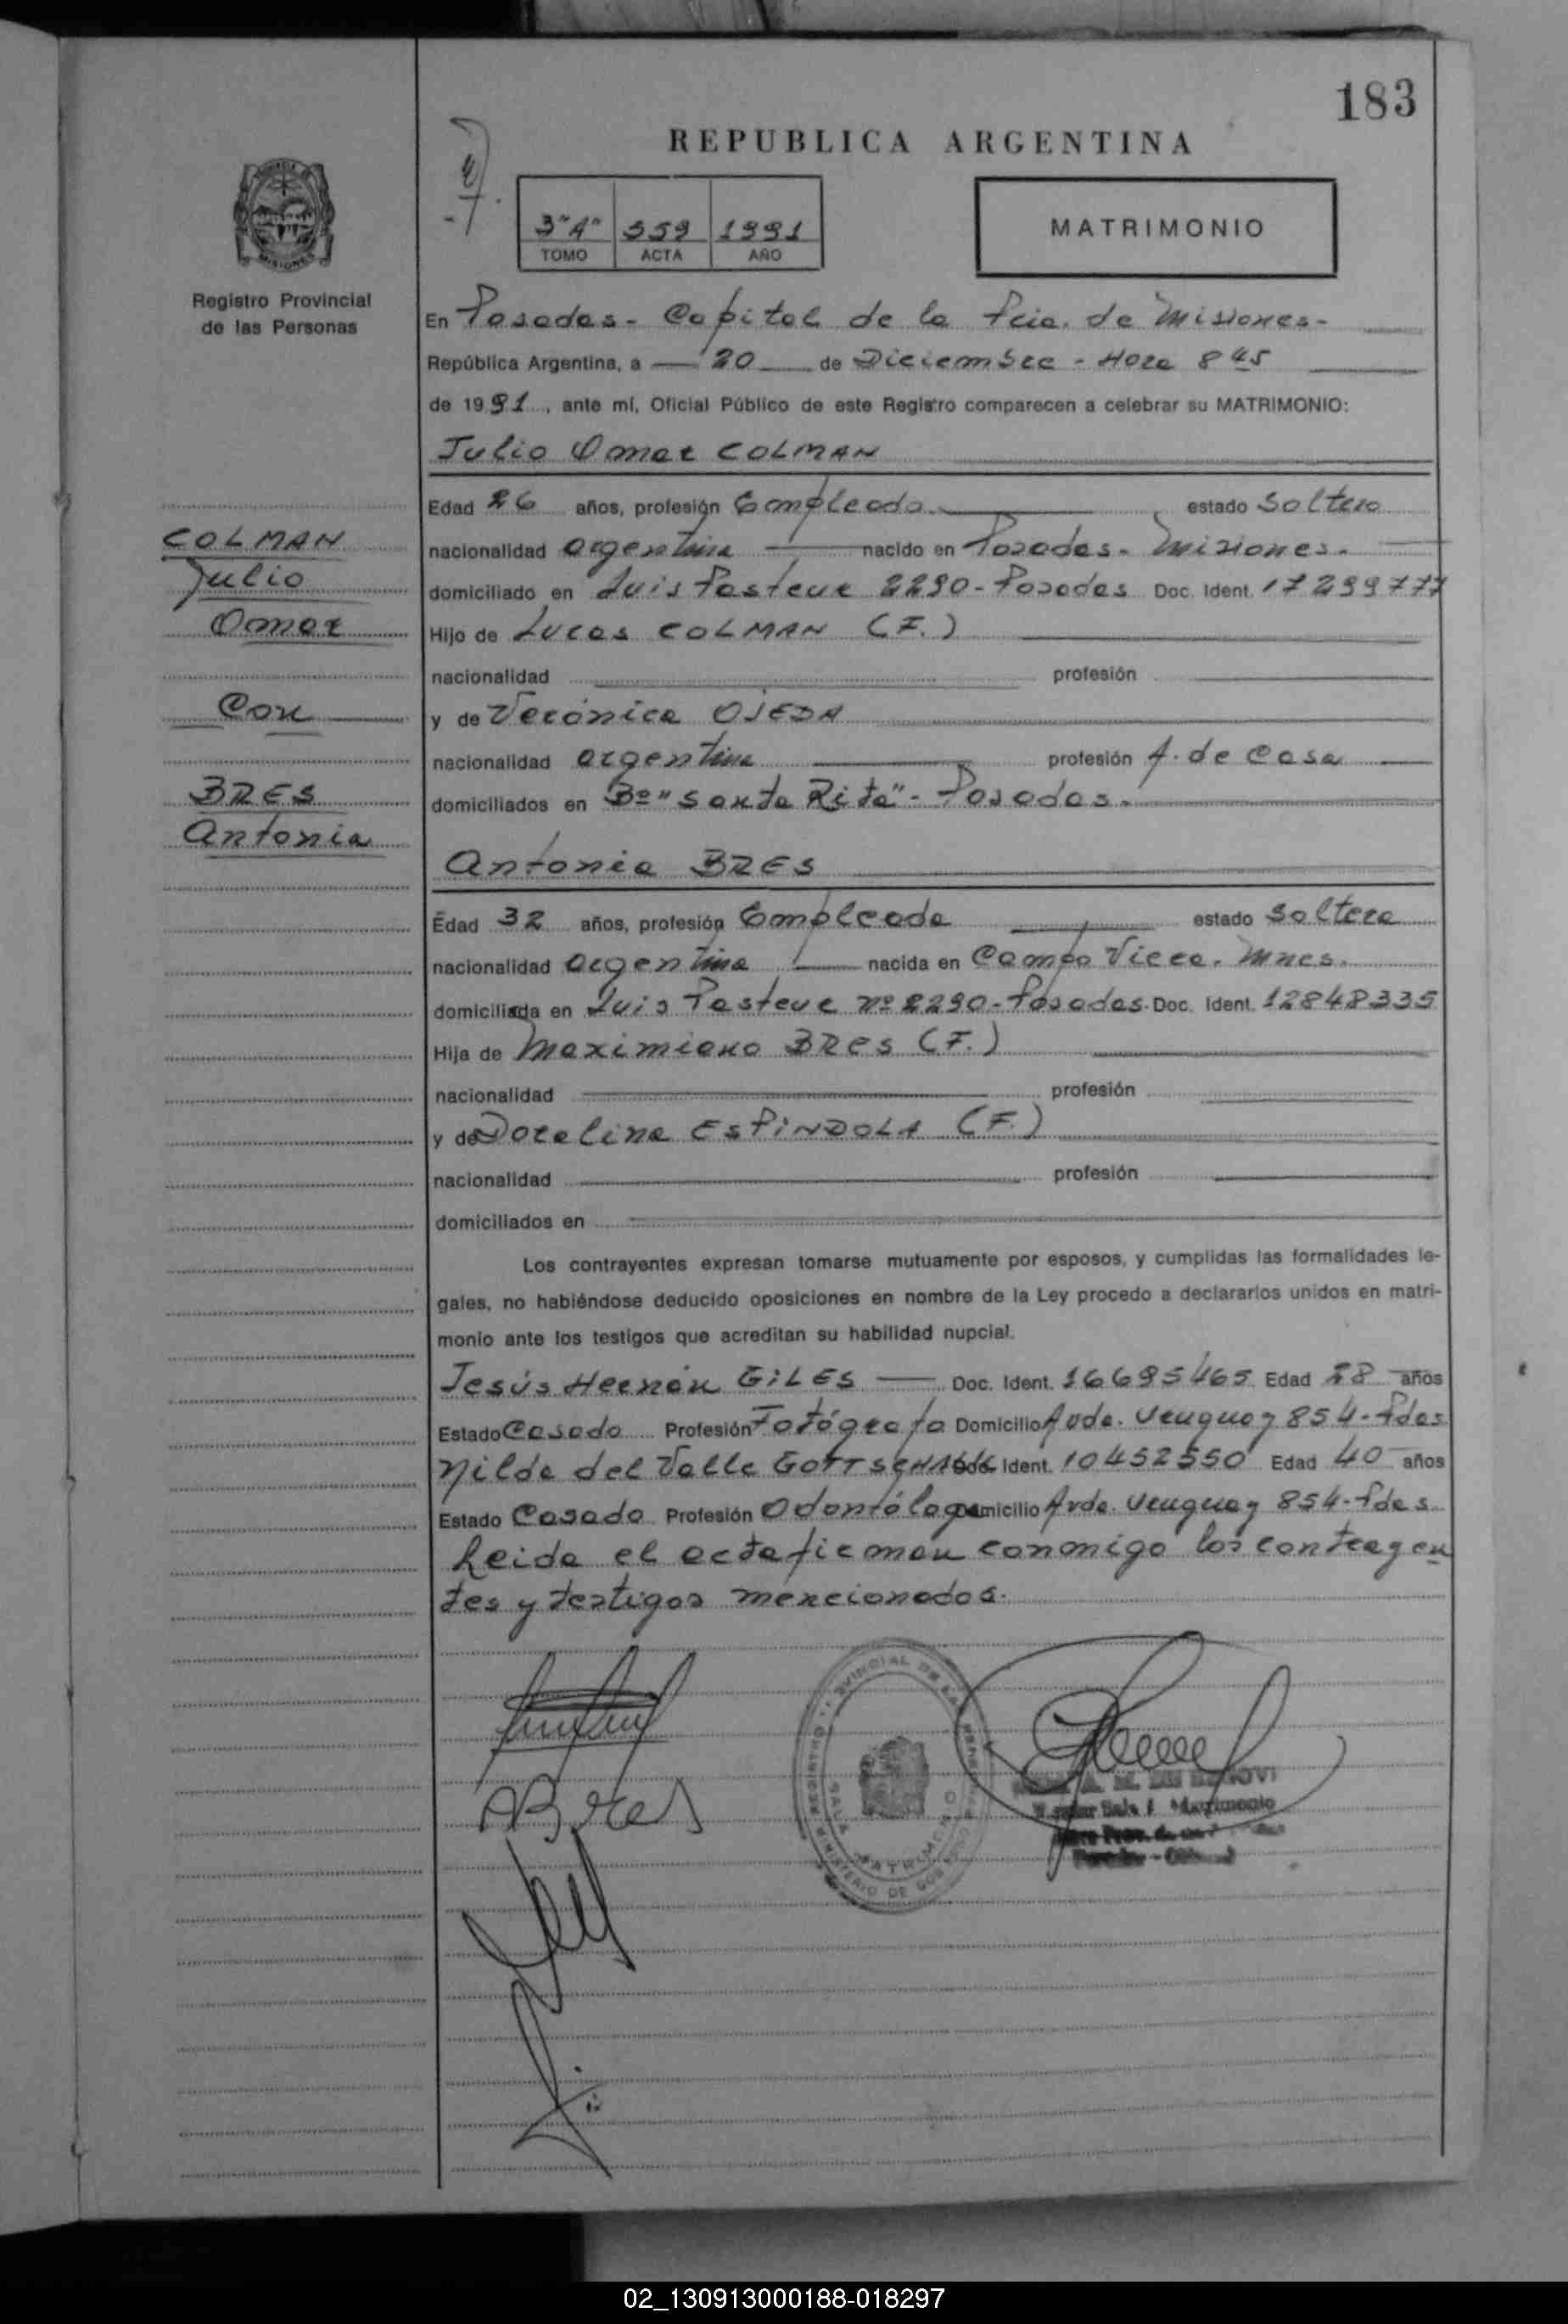 183
REPUBLICA ARGENTINA
3"A" 559 1991
TOMO ACTA AÑO
MATRIMONIO
MISIONES
Registro Provincial
de las Personas
En Posadas - Capital de la Pcia. de Misiones -
República Argentina, a 20 de Diciembre - Hora 8 45
de 1991, ante mí, Oficial Público de este Registro comparecen a celebrar su MATRIMONIO:
Julio Omar COLMAN
Edad 26 años, profesión Empleado estado Soltero
COLMAN
nacionalidad argentina nacido en Posadas - Misiones.
Julio
domiciliado en Luis Pasteur 2290 - Posadas Doc. Ident. 17299777
Omar
Hijo de Lucas COLMAN (F.)
nacionalidad profesión
Con
y de Verónica OJEDA
nacionalidad argentina profesión A. de Casa
BRES
domiciliados en Bº "Santa Rita" - Posadas.
Antonia
Antonia BRES
Edad 32 años, profesión Empleada estado Soltera
nacionalidad argentina nacida en Campo Viera. Mnes.
domiciliada en Luis Pasteur nº 2290 - Posadas. Doc. Ident. 12848335
Hija de Maximiano BRES (F.)
nacionalidad profesión
y de Doralina ESPINDOLA (F.)
nacionalidad profesión
domiciliados en
Los contrayentes expresan tomarse mutuamente por esposos, y cumplidas las formalidades le-
gales, no habiéndose deducido oposiciones en nombre de la Ley procedo a declararlos unidos en matri-
monio ante los testigos que acreditan su habilidad nupcial.
Jesús Hernán GILES Doc. Ident. 16695465 Edad 28 años
Estado Casado Profesión Fotógrafo Domicilio Avda. Uruguay 854 - Pdas
Nilda del Valle GOTTSCHALK Doc. Ident. 10452550 Edad 40 años
Estado Casada Profesión Odontóloga Domicilio Avda. Uruguay 854 - Pdas
Leida el acta firman conmigo los contrayen
tes y testigos mencionados.
ABres
MATRIMONIO
02_130913000188-018297